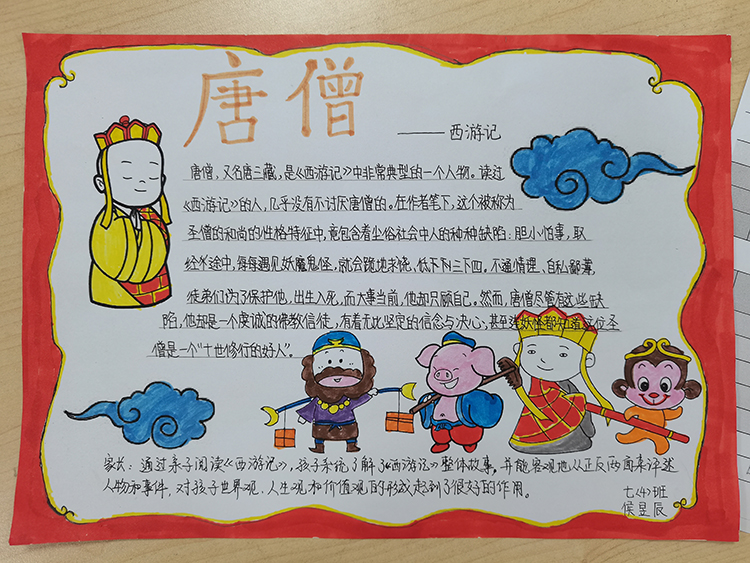 唐僧
——西游记
唐僧，又名唐三藏，是《西游记》中非常典型的一个人物。读过
《西游记》的人，几乎没有不讨厌唐僧的。在作者笔下，这个被称为
圣僧的和尚的性格特征中，竟包含着尘俗社会中人的种种缺陷：胆小怕事，取
经半途中，每每遇见妖魔鬼怪，就会跪地求饶，低下下三下四。不通情理、自私鄙薄，
徒弟们为了保护他，出生入死，而大事当前，他却只顾自己。然而，唐僧尽管有这些缺
陷，他却是一个虔诚的佛教信徒，有着无比坚定的信念与决心，甚至连妖怪都知道这位圣
僧是一个“十世修行的好人”。
家长：通过亲子阅读《西游记》，孩子系统了解了《西游记》整体故事，并能客观地从正反两面来评述
人物和事件，对孩子世界观、人生观和价值观的形成起到了很好的作用。
七(4)班
侯昱辰